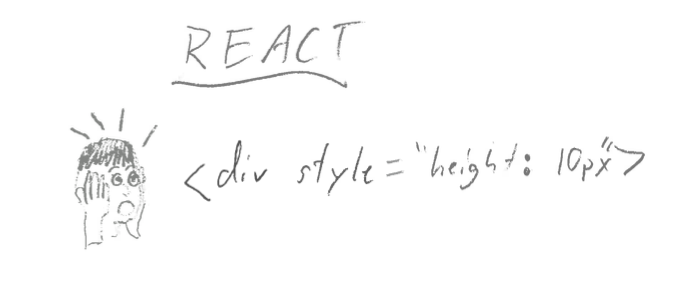 REACT
<div style="height: 10px">